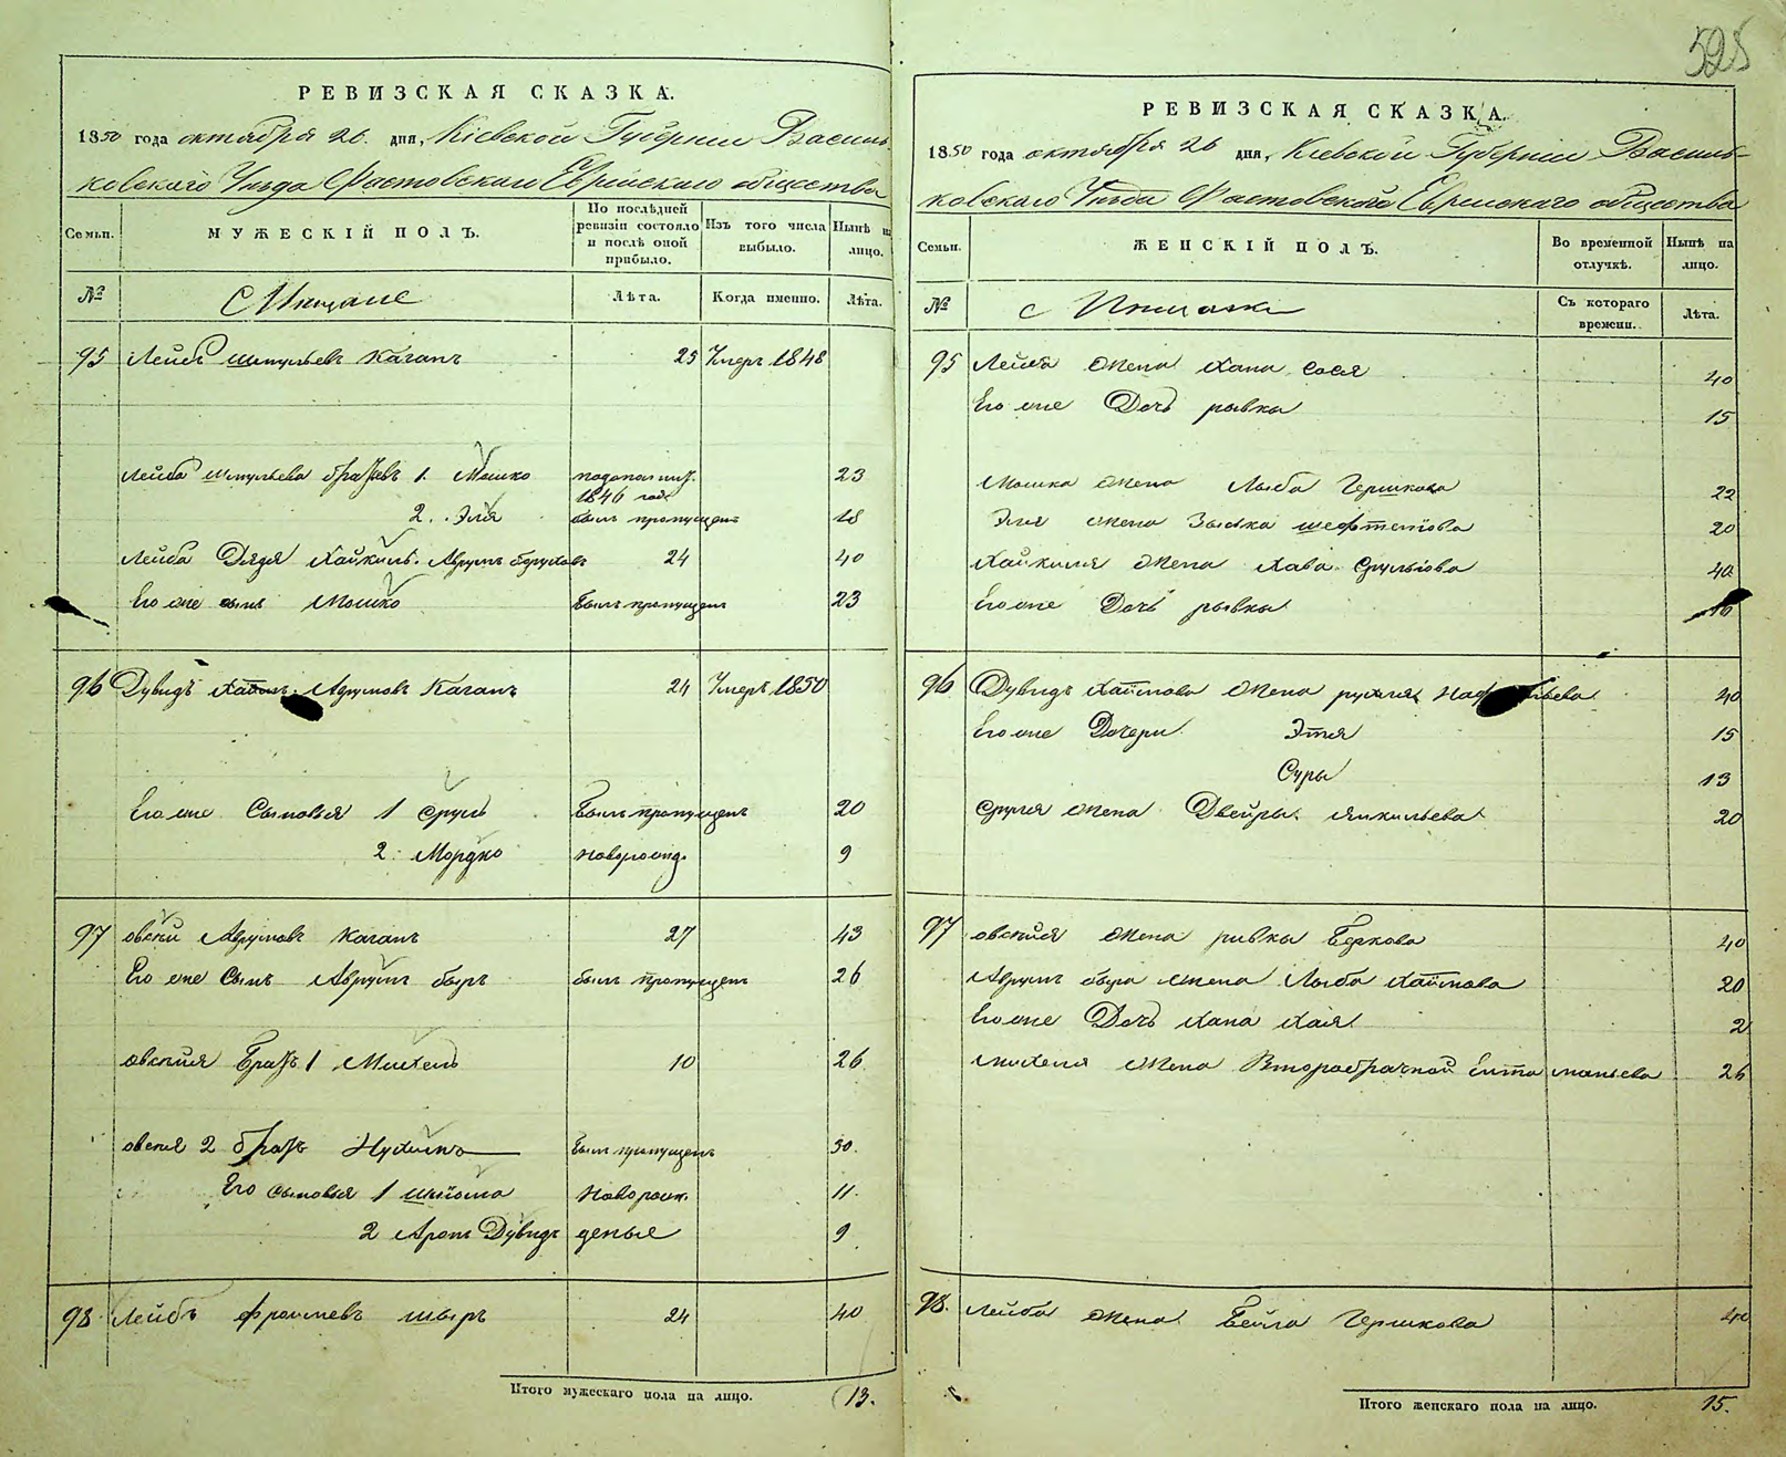 525
РЕВИЗСКАЯ СКАЗКА.
1850 года октября 26. дня, Кіевской Губерніи Василь-
ковскаго Уезда Фастовскаго Еврейскаго общества
Семьи.
МУЖЕСКІЙ ПОЛЪ.
По послѣдней ревизіи состояло и послѣ оной прибыло.
Изъ того числа выбыло.
Нынѣ на лицо.
№
Мещане
Лѣта.
Когда именно.
Лѣта.
95 Лейба Шмульевъ Каганъ 25 Умеръ 1848
Лейба Шмульева братья 1. Мошко 1846 года 23
2. Эля былъ пропущенъ 18
Лейба Дядя Хайкилъ Аврумъ 24 40
Его же сынъ Мошко былъ пропущенъ 23
96 Дувидъ Хаимъ Аврумовъ Каганъ 24 Умеръ 1850
Его же Сыновья 1 Сруль былъ пропущенъ 20
2. Мордко новорожд. 9
97 Овсѣй Аврумовъ Каганъ 27 43
Его же Сынъ Аврумъ Беръ былъ пропущенъ 26
Овсѣя Братъ 1 Михель 10 26
Овсѣя 2 братъ Нухимъ былъ пропущенъ 30.
Его сыновья 1 Шлёма Новорож. 11.
2 Аронъ Дувидъ деные 9
98 Лейбъ Фроимевъ 24 40
Итого мужескаго пола на лицо. 13.
РЕВИЗСКАЯ СКАЗКА.
1850 года октября 26 дня, Кіевской Губерніи Василь-
ковскаго Уезда Фастовскаго Еврейскаго общества
Семьи.
ЖЕНСКІЙ ПОЛЪ.
Во временной отлучкѣ.
Нынѣ на лицо.
№
Съ котораго времени.
Лѣта.
95 Лейба Жена Хана Сося 40
Его же Дочь рывка 15
Мошка Жена Лыба Гершкова 22
Эля жена 20
Хайкиля Жена Хава Срулёва 40
Его же Дочь рывка
96 Дувидъ Хаимова Жена рухля 40
Его же Дочери Этля 15
Суры 13
Сруля жена Двейры Янкильева 20
97 Овсѣя Жена ривка Беркова 40
Аврумъ бера жена Лыба Хаимова 20
Его же Дочь Хана Хая 2
Михеля Жена Второбрачной 26
98. Лейба Жена Бейла Гершкова 40
Итого женскаго пола на лицо. 15.